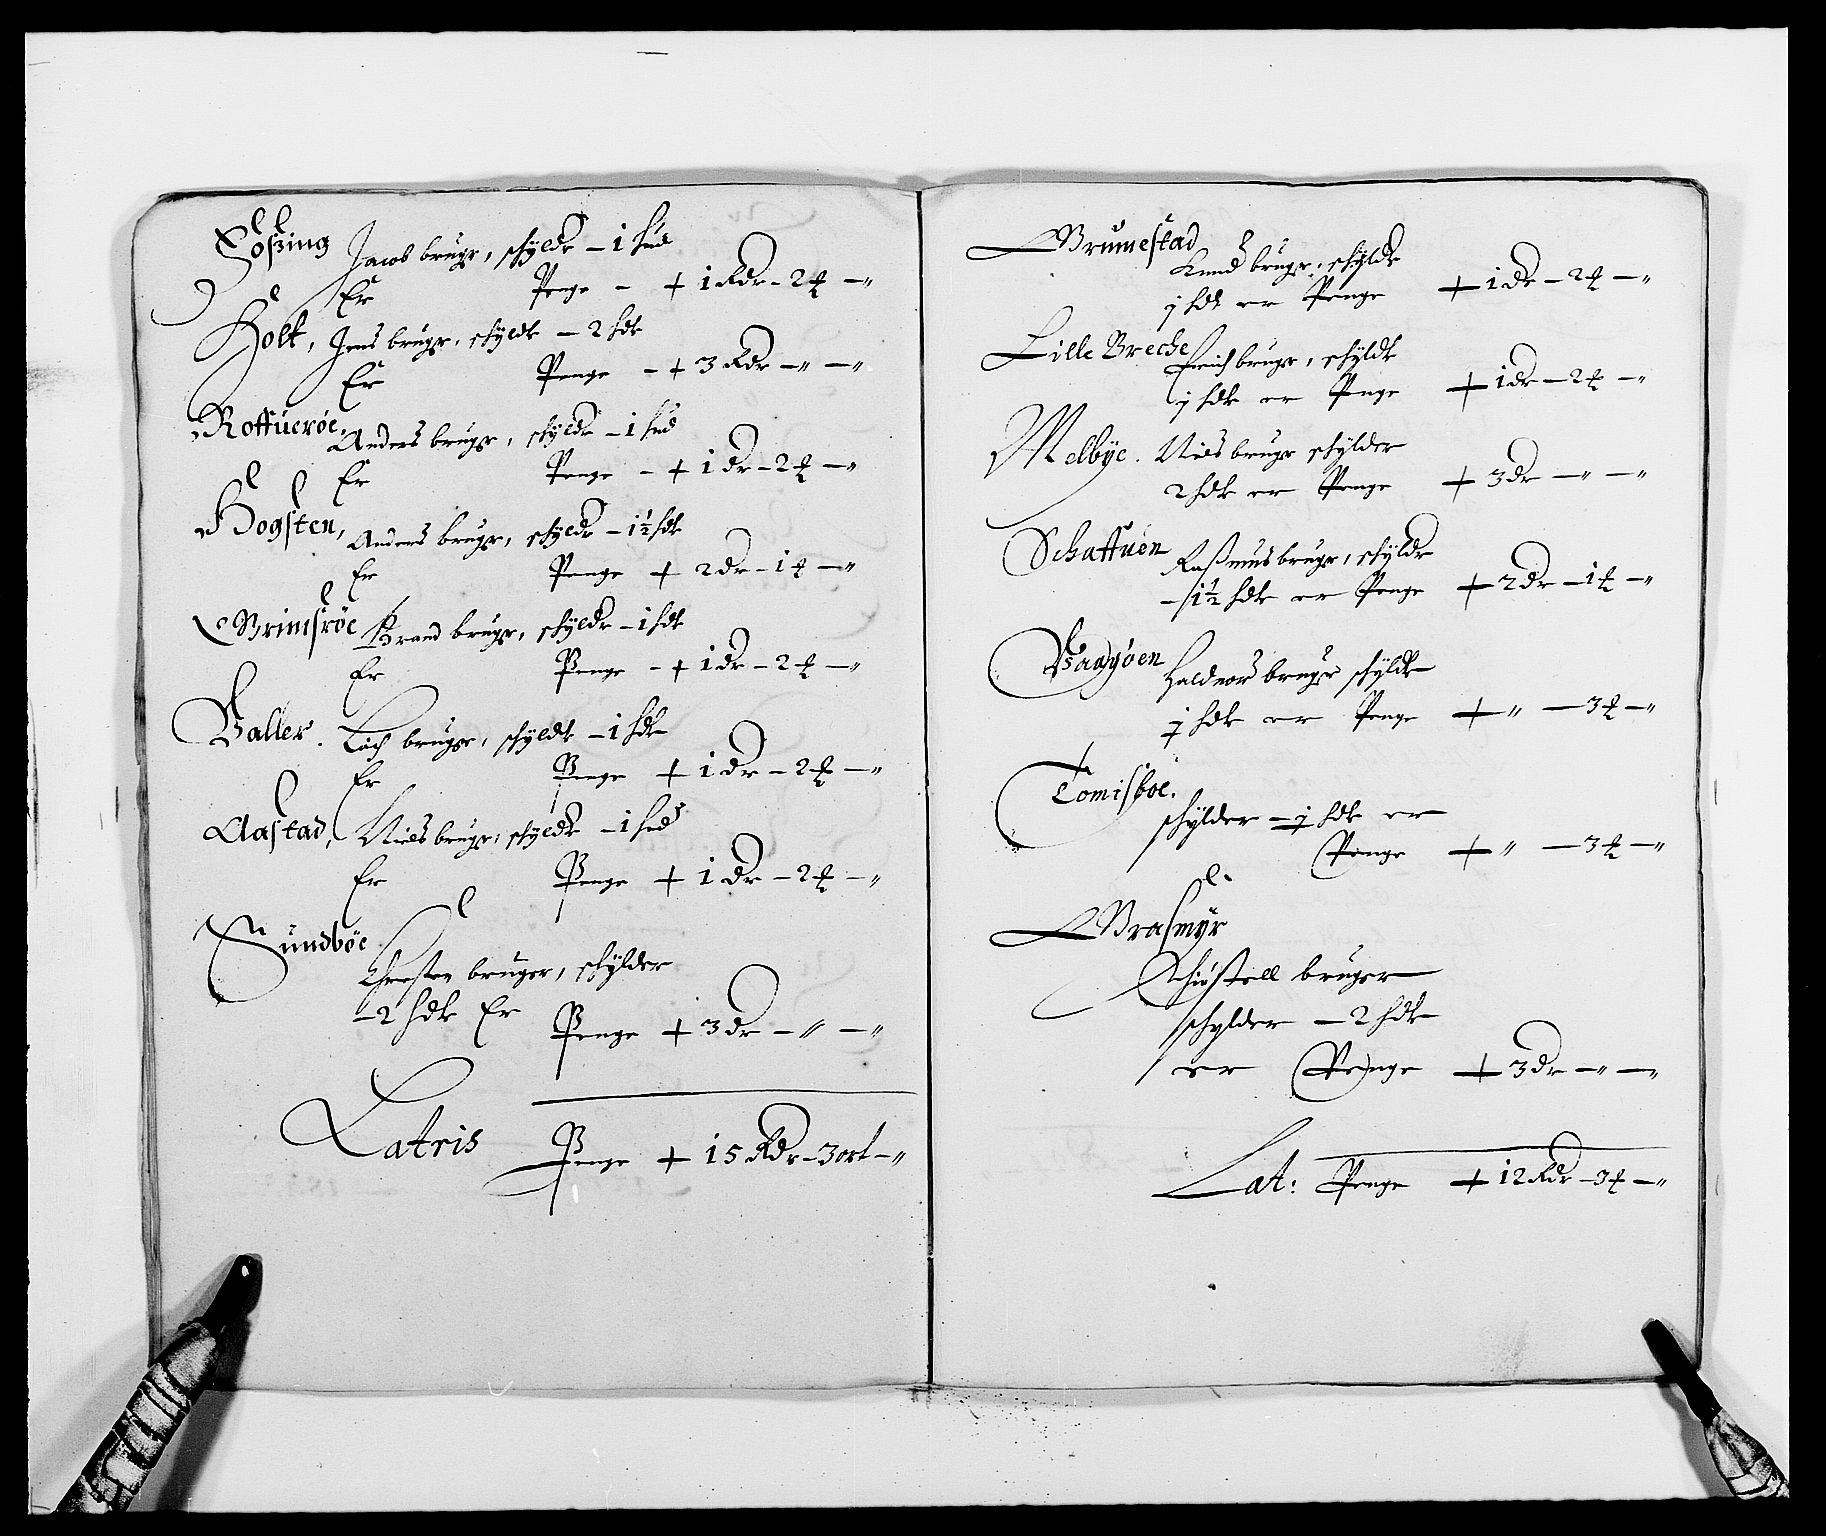 Joßing Jacob bruger, schylder – 1 hud
Er Penge – + 1 Rdr – 2 ℔ – "
Holt, Jens bruger, schyldr – 2 hdr
Er Penge – + 3 Rdr – " – "
Roffuerøe, Anders bruger, schyldr – 1 hud
Er Penge – + 1 dr – 2 ℔ – "
Hogsten, Anders bruger, schyldr – 1½ hdr
Er Penge + 2 dr – 1 ℔ – "
Grimsrøe Brand bruger, schyldr – 1 hdr
Er Penge – + 1 dr – 2 ℔ – "
Valler. bruger, schyldr – 1 hdr
Er Penge + 1 dr – 2 ℔ – "
Aastad, Niels bruger, schyldr – 1 hud
Er Penge + 1 dr – 2 ℔ – "
Sundbøe
Christen bruger, schylder
– 2 hdr Er Penge + 3 dr – " – "
Latris Penge + 15 Rdr – 3 ort – "
Grumestad
Knud bruger, schyldr
j hdr er Penge + 1 dr – 2 ℔ – "
Lille Breche Erich bruger, schyldr
j hdr er Penge + 1 dr – 2 ℔ – "
Melbye. Niels bruger schylder
2 hdr er Penge + 3 dr – " – "
Schaffuen Raßmus bruger, schyldr
– 1½ hdr er Penge + 2 dr – 1 ℔ – "
Haldvors bruger schyldr
j hdr er Penge + " – 3 ℔ – "
Tomisboe.
schylder – j hdr er
Penge + " – 3 ℔ – "
Grasmyr
bruger
schylder – 2 hdr
er Penge + 3 dr – " – "
Lat: Penge + 12 Rdr – 3 ℔ – "